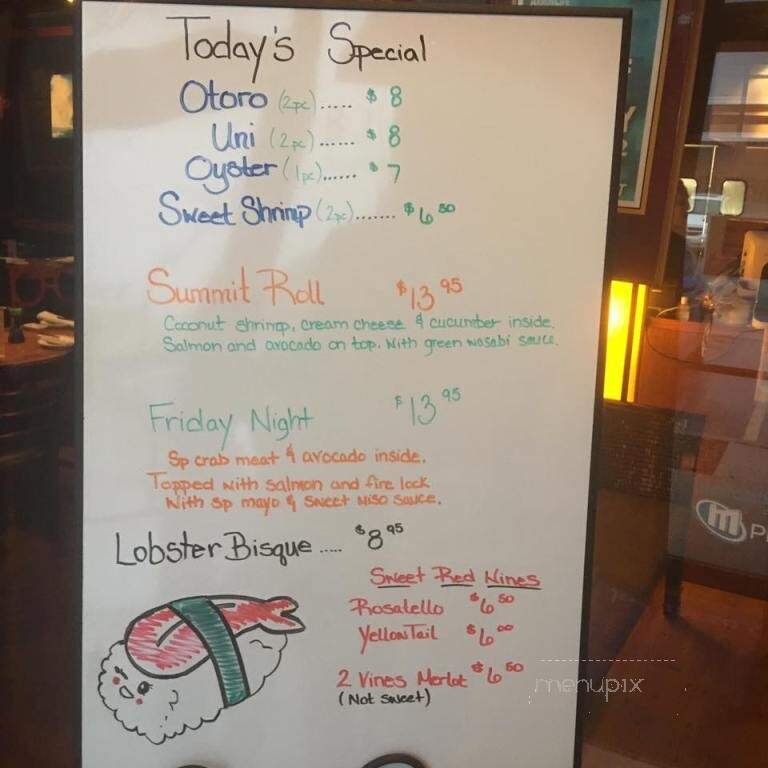 Today's Special
Otoro (2pc)..... $8
Uni (2pc)...... $8
Oyster (1pc)...... $7
Sweet Shrimp (2pc)....... $6.50
Summit Roll $13.95
Coconut shrimp, cream cheese & cucumber inside.
Salmon and avocado on top. With green wasabi sauce.
Friday Night $13.95
Sp crab meat & avocado inside.
Topped with salmon and fire lock
With sp mayo & sweet miso sauce.
Lobster Bisque ..... $8.95
Sweet Red Wines
Rosatello $6.50
YellowTail $6.00
2 Vines Merlot $6.50
(Not sweet)
menupix